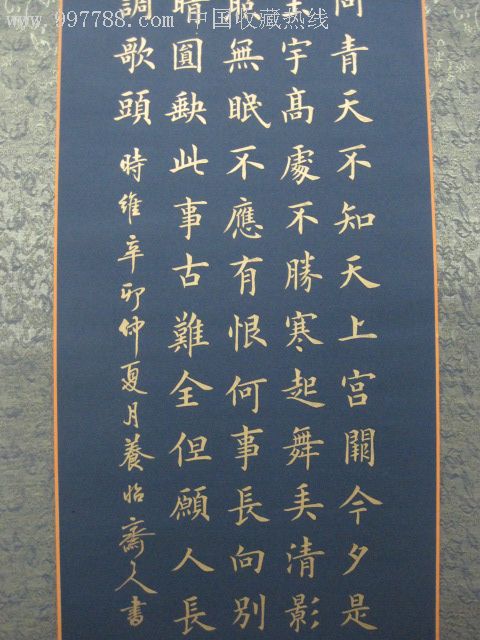 www.997788.com 中国收藏热线
問青天不知天上宮闕今夕是
玉宇高處不勝寒起舞弄清影
照無眠不應有恨何事長向別
晴圓缺此事古難全但願人長
調歌頭 時維辛卯仲夏月養怡齋人書